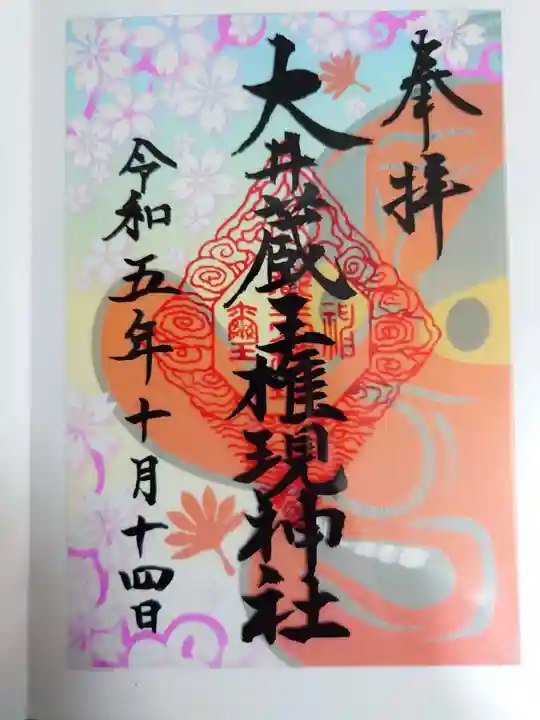 奉拝
大井蔵王権現神社
令和五年十月十四日